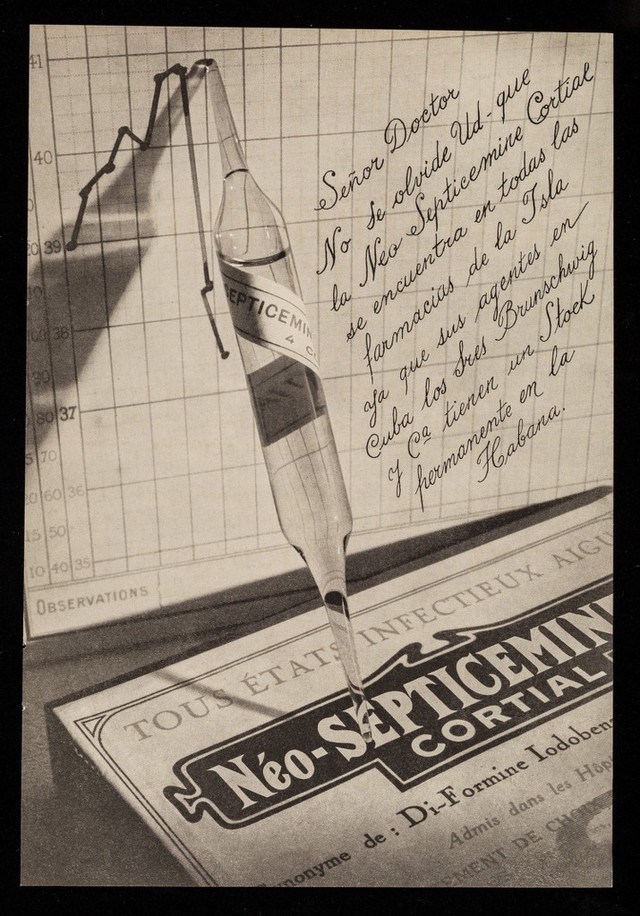 41
40
39
38
37
Señor Doctor
No se olvide Ud-que
la Neo Septicemine Cortial
se encuentra en todas las
farmacias de la Isla
ya que sus agentes en
Cuba los Sres Brunschwig
y Cª tienen un Stock
permanente en la
Habana.
SEPTICEMIN
4 C
70
60 36
50
10 40 35
OBSERVATIONS
TOUS ÉTATS INFECTIEUX AIGU
Néo-SEPTICEMIN
CORTIAL
nonyme de: Di-Formine Iodoben
Admis dans les Hôp
EMENT DE CHOIX